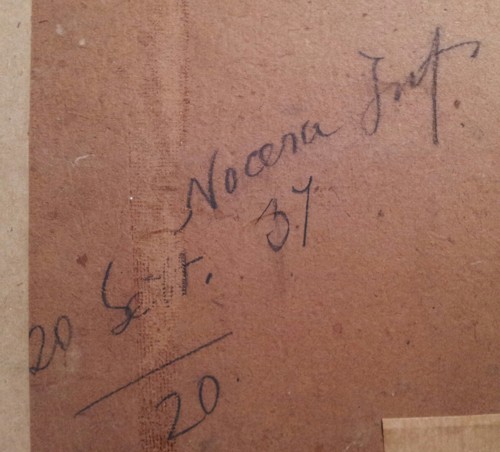 Nocera Inf.
20 Sett. 37
20